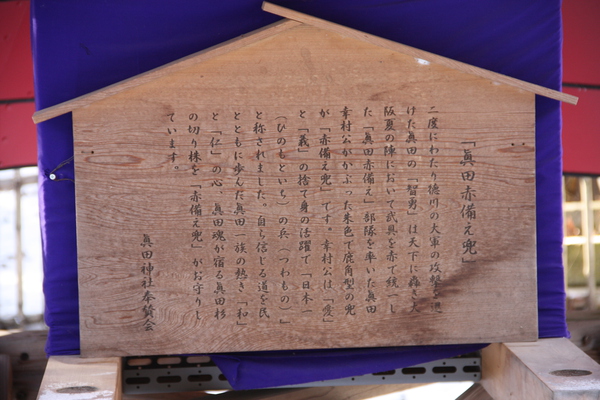 「眞田赤備え兜」
二度にわたり徳川の大軍の攻撃を退
けた眞田の「智勇」は天下に轟き大
阪夏の陣において武具を赤で統一し
た「眞田赤備え」部隊を率いた眞田
幸村公がかぶった朱色で鹿角型の兜
が「赤備え兜」です。幸村公は「愛」
と「義」の捨て身の活躍で「日本一
(ひのもといち)の兵(つわもの)」
と称されました。自ら信じる道を民
とともに歩んだ眞田一族の熱き「和」
と「仁」の心、眞田魂が宿る眞田杉
の切り株を「赤備え兜」がお守りし
ています。
眞田神社奉賛会